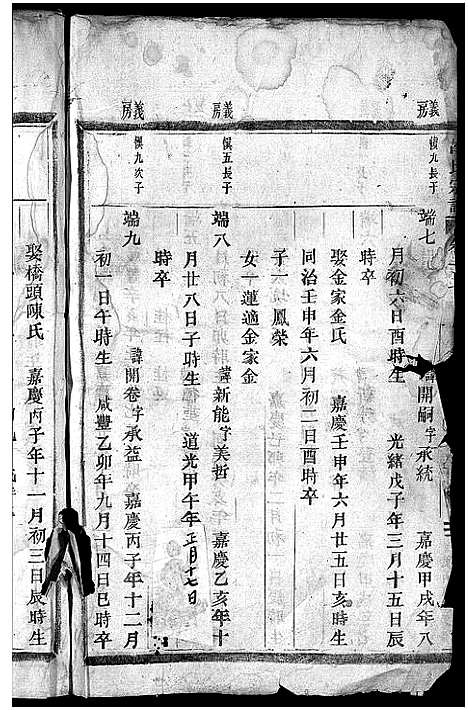 義房
慎九長子
端七
諱開嗣字承統 嘉慶甲戌年八
月初六日酉時生 光緒戊子年三月十五日辰
時卒
娶金家金氏 嘉慶壬申年六月廿五日亥時生
同治壬申年六月初二日酉時卒
子一 鳳榮
女一蓮適金家金
義房
慎五長子
端八
諱新能字美哲 嘉慶乙亥年十
月廿八日子時生 道光甲午年正月十七日
時卒
義房
慎九次子
端九
諱開卷字承益 嘉慶丙子年十二月
初一日午時生 咸豐乙卯年九月十四日巳時卒
娶橋頭陳氏 嘉慶丙子年十一月初三日辰時生